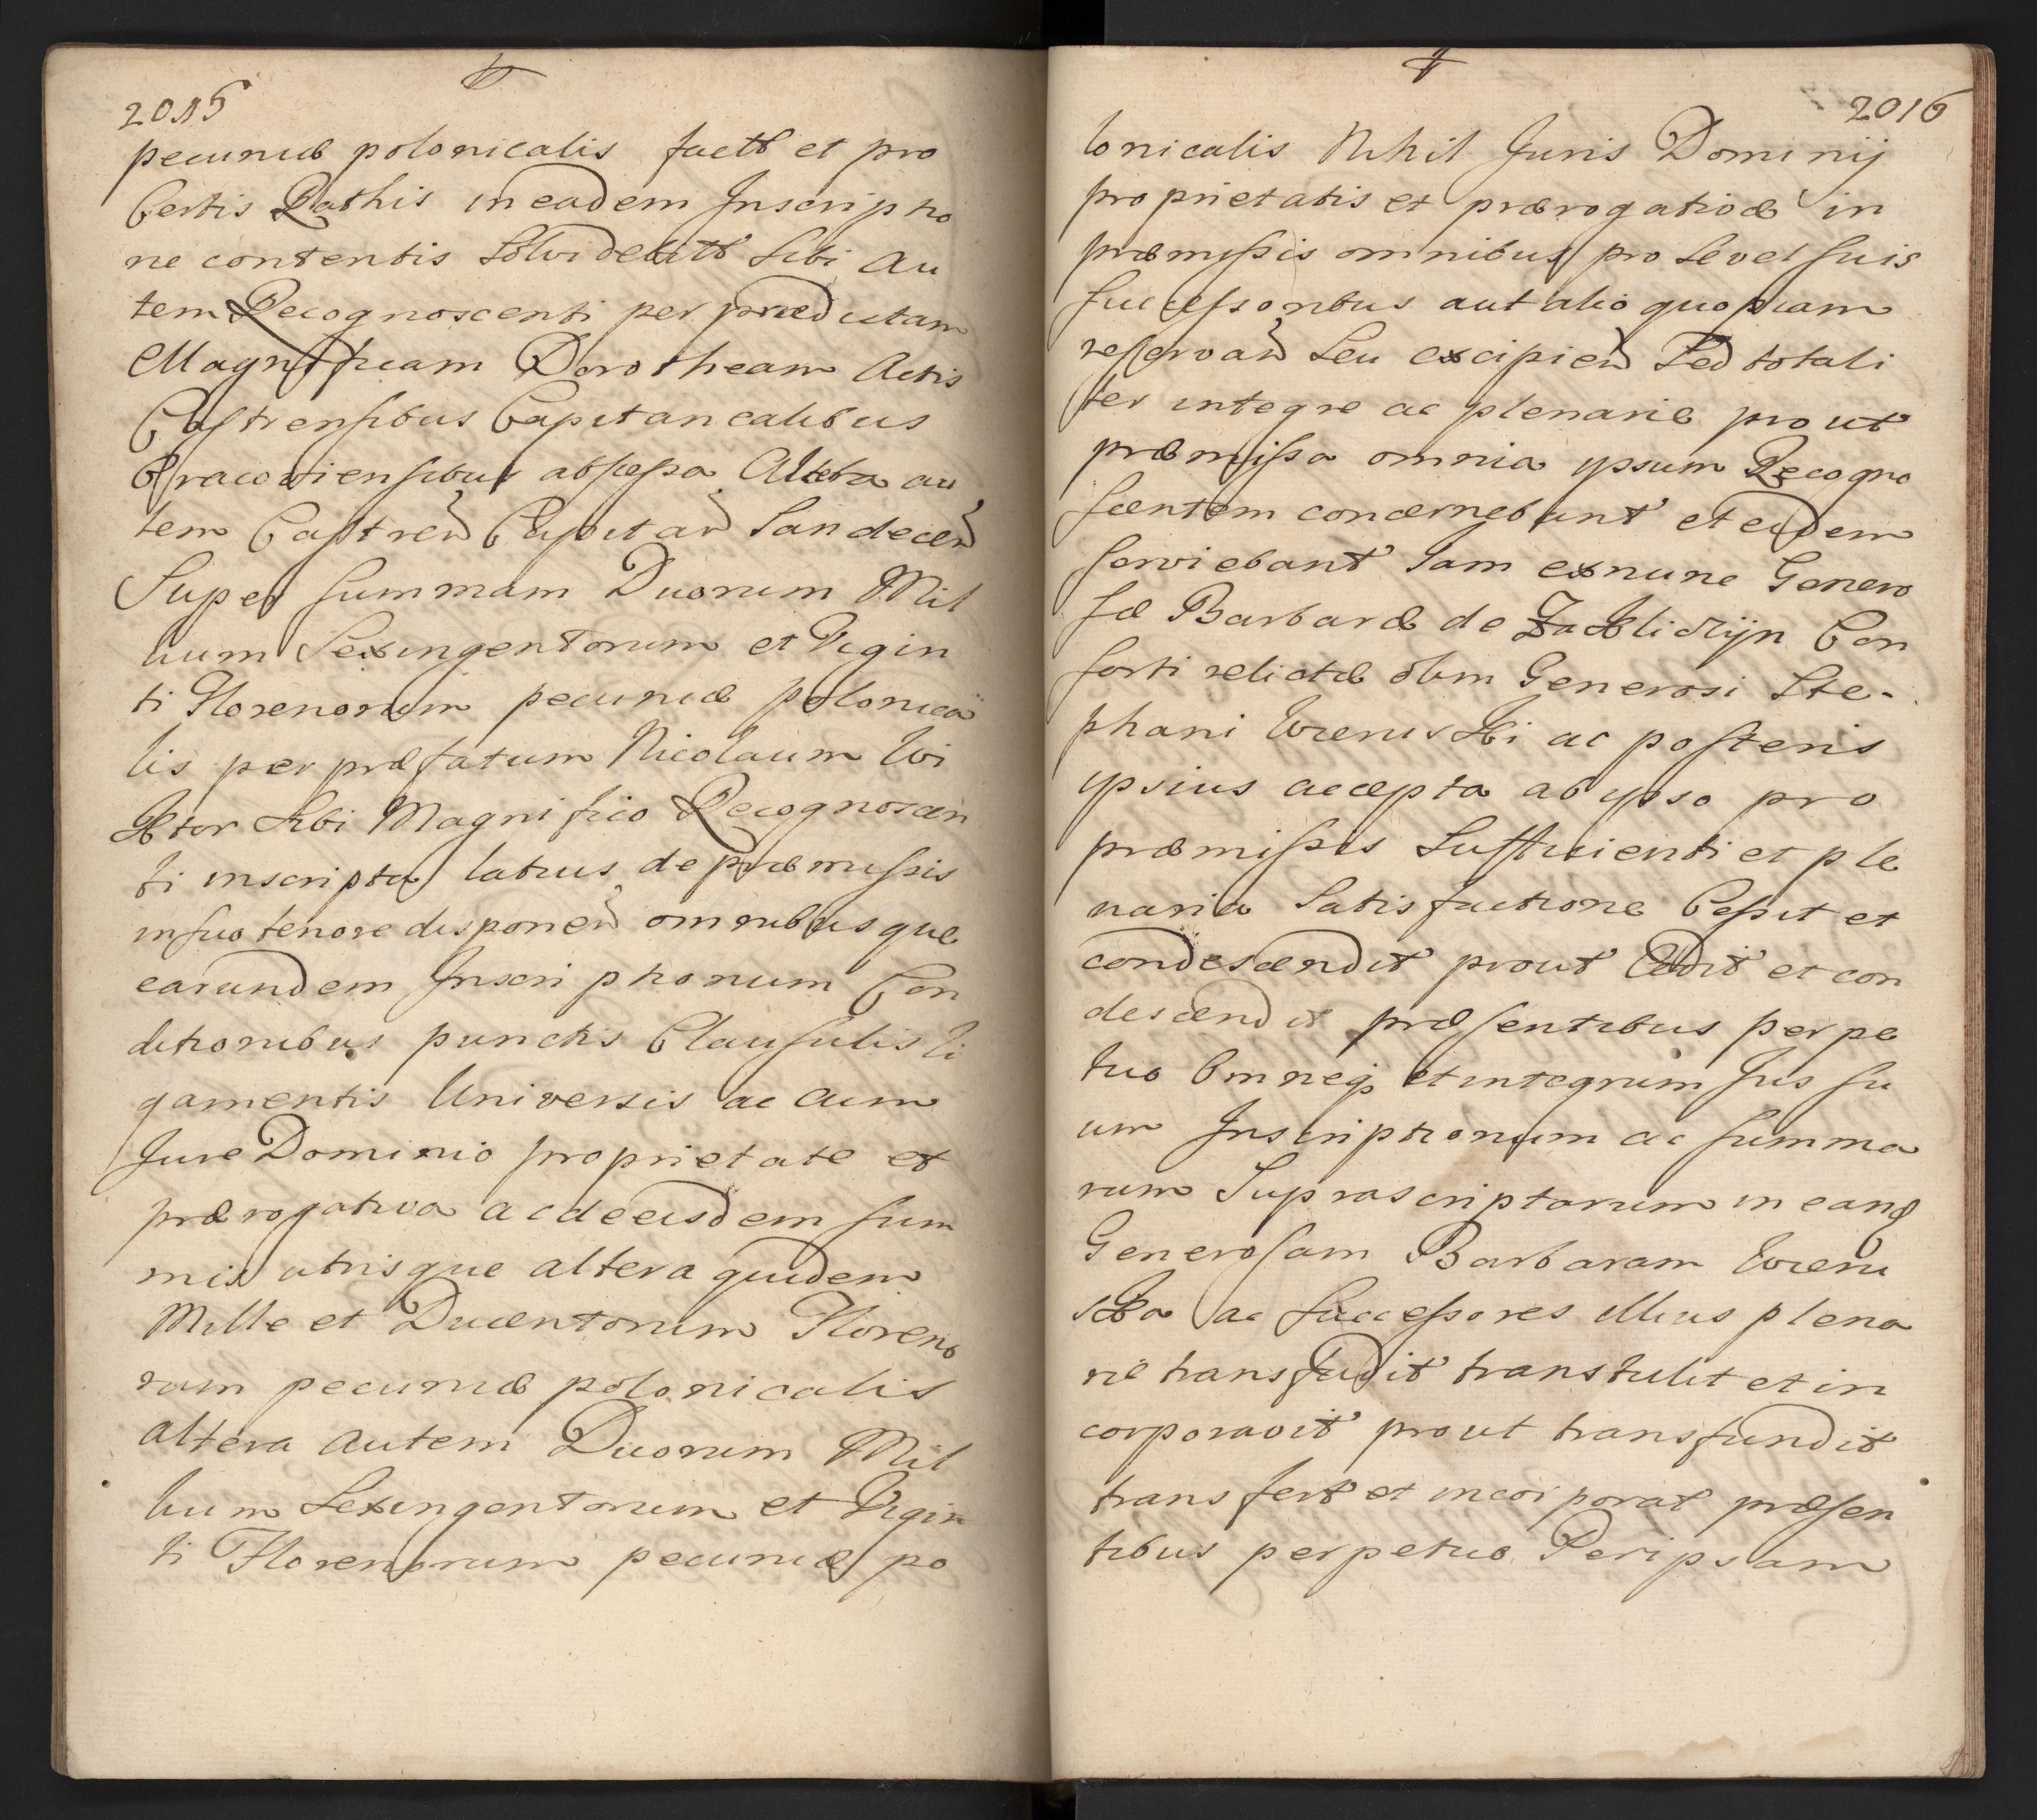 2015
pecuniæ polonicalis factæ et pro
Certis Rathis in eadem Inscriptio
ne contentis Solvi debitæ Sibi au
tem Recognoscenti per prædictam
Magnificam Dorotheam Actis
Castrensibus Capitanealibus
Cracoviensibus Altera au
tem Castren Capitan Sandecen
Super summam Duorum Mil
lium Sexingentorum et Vigin
ti Florenorum pecuniæ polonica
lis per præfatum Nicolaum Wi
ktor Sibi Magnifico Recognoscen
ti inscripta latius de præmissis
in suo tenore disponen omnibusque
earundem Inscriptionum Con
ditionibus punctis Clausulis li
gamentis Universis ac cum
Jure Dominio proprietate et
prærogativa ac de eisdem sum
mis utrisque altera quidem
Mille et Ducentorum Floreno
rum pecuniæ polonicalis
altera autem Duorum Mil
lium Sexingentorum et Vigin
ti Florenorum pecuniæ po
2016
lonicalis Nihil Juris Dominij
proprietatis et prærogativæ in
præmissis omnibus pro Se vel suis
successoribus aut alio quopiam
reservan Seu excipien Sed totali
ter integre ac plenarie prout
præmissa omnia ipsum Recogno
scentem concernebant et eidem
serviebant Jam exnunc Genero
sæ Barbaræ de Zakliczyn Con
sorti relictæ olim Generosi Ste-
phani Wieruski ac posteris
ipsius accepta ab ipso pro
præmissis Sufficienti et ple
naria Satisfactione Cessit et
condescendit prout Cedit et con
descendit præsentibus perpe
tuo Omneq et integrum Jus su
um Inscriptionum ac summa
rum Suprascriptarum in eand
Generosam Barbaram Wieru
ska ac Successores illius plena
rie transfudit transtulit et in
corporavit prout transfundit
transfert et incorporat præsen
tibus perpetuo Per ipsam